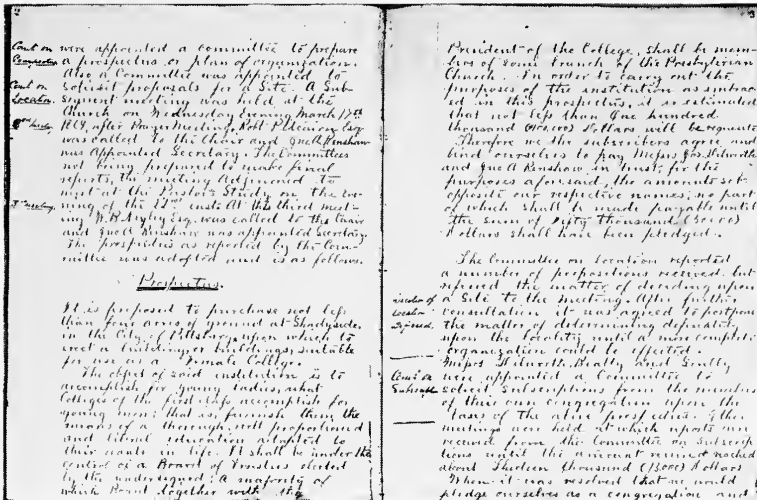 2
Com't on
Prospectus
Com't on
Location.
2nd meeting
3rd meeting
were appointed a committee to prepare
a prospectus or plan of organization.
Also a Committee was appointed to
Solicit proposals for a Site. A Sub-
sequent meeting was held at the
Church on Wednesday Evening March 17th
1869, after Prayer Meeting, Robt
was called to the Chair and Jno A Renshaw
was appointed Secretary. The Committees
not being prepared to make final
reports, the meeting adjourned to
meet at the Pastor's Study on the eve-
ning of the 22nd inst. At this third meet-
ing W.R. Esq. was called to the chair
and Jno A Renshaw was appointed Secretary
The prospectus as reported by the Com-
mittee was adopted and is as follows.
Prospectus.
It is proposed to purchase not less
than four acres of ground at Shadyside
in the City of Pittsburg, upon which to
erect a building or buildings, suitable
for use as a Female College.
The object of said institution is to
accomplish for young ladies, what
Colleges of the first class, accomplish for
young men: that is, furnish them the
means of a thorough, well proportioned
and liberal education adapted to
their wants in life. It shall be under the
control of a Board of Trustees elected
by the undersigned: A majority of
which Board together with the
3
President of the College, shall be mem-
bers of some branch of the Presbyterian
Church. In order to carry out the
purposes of the institution as embrac-
ed in this prospectus, it is estimated
that not less than One hundred
thousand (100,000) Dollars will be required
Therefore we the subscribers agree and
bind ourselves to pay Messrs Jos. Dilworth
and Jno A Renshaw in trust, for the
purposes aforesaid, the amounts set
opposite our respective names; no part
of which shall be made payable until
the sum of Fifty thousand (50000)
Dollars shall have been pledged.
The Committee on Location reported
a number of propositions received, but
referred the matter of deciding upon
a Site to the meeting. After further
consultation it was agreed to postpone
the matter of determining definitely
upon the locality until a more complete
organization could be effected.
Messrs Dilworth, Beatty and Scully
were appointed a Committee to
solicit subscriptions from the members
of their own congregation upon the
basis of the above prospectus. Other
meetings were held at which reports were
received from the Committee on Subscrip-
tions until the amount secured reached
about Thirteen thousand (13000) Dollars
When it was resolved that we would
pledge ourselves as a congregation and
Location
Deferred.
Com't on
Subscript